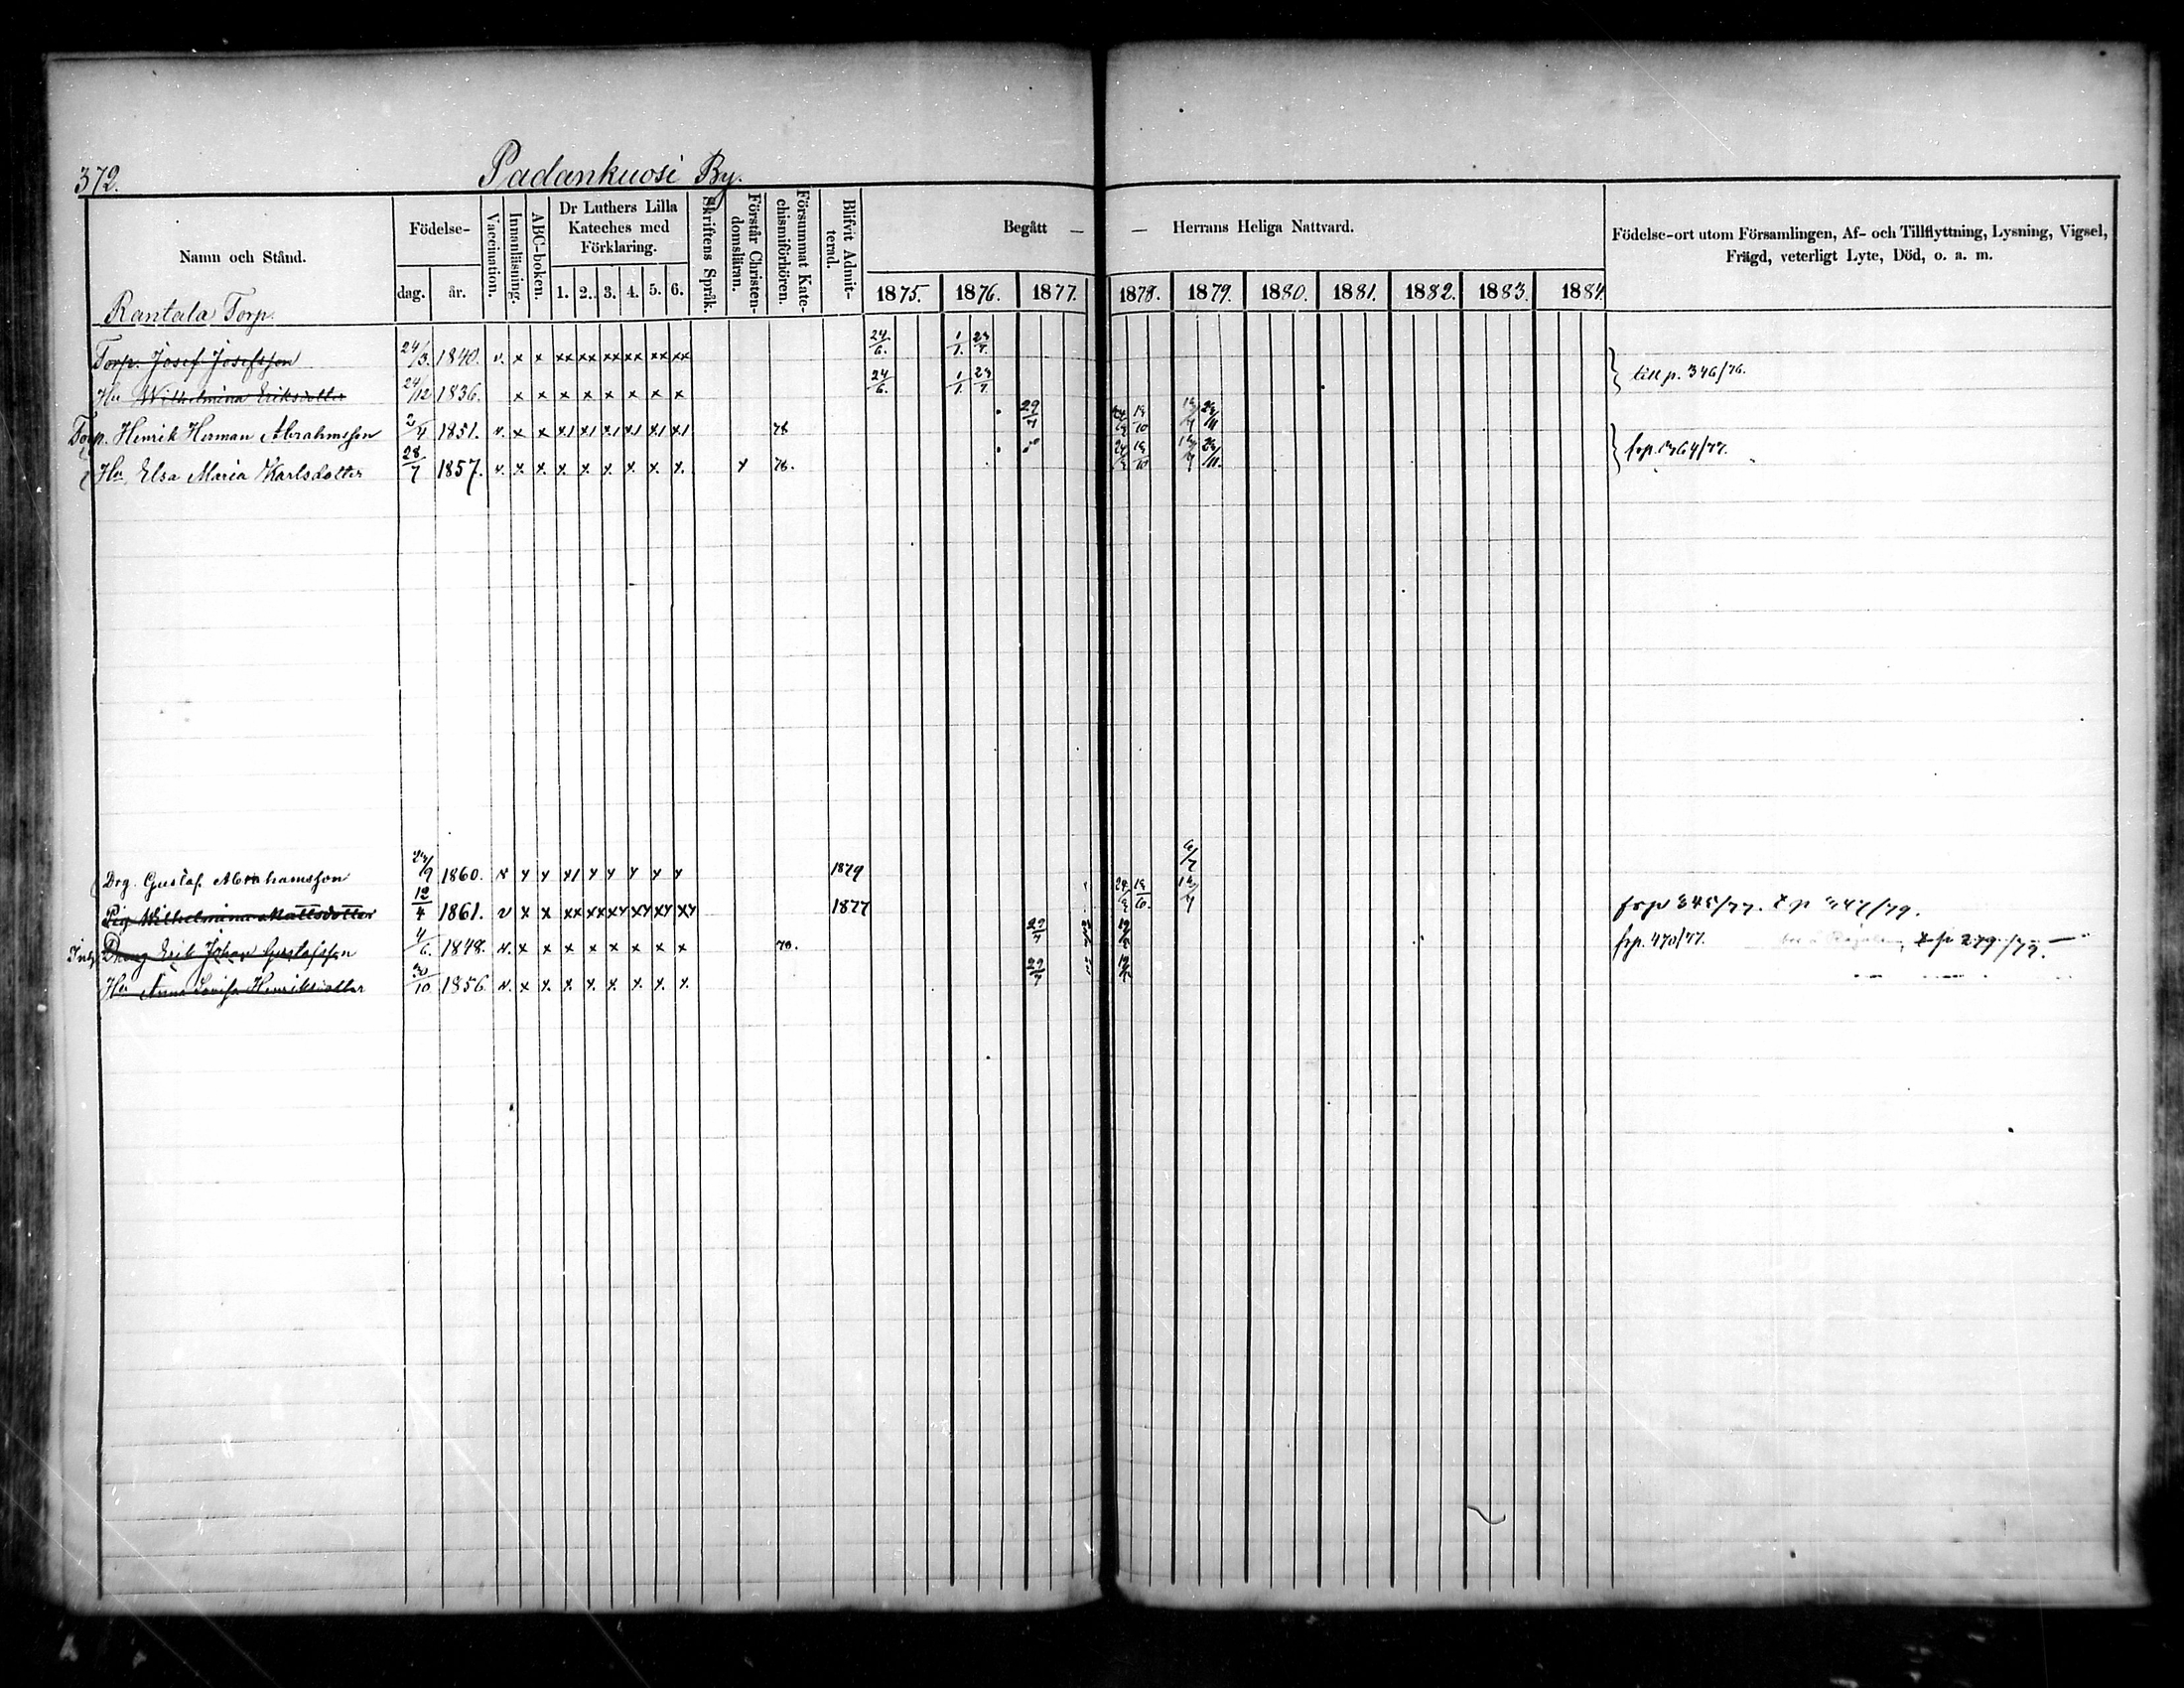 372.
Padankuosi By.
Namn och Stånd. Födelse- Vaccination. Innanläsning. ABC-boken. Dr Luthers Lilla Kateches med Förklaring. Skriftens Språk. Förstår Christendomsläran. Försummat Katechismiförhören. Blifvit Admitterad. Begått — — Herrans Heliga Nattvard. Födelse-ort utom Församlingen, Af- och Tillflyttning, Lysning, Vigsel, Frägd, veterligt Lyte, Död, o. a. m.
dag. år. 1. 2. 3. 4. 5. 6. 1875. 1876. 1877. 1878. 1879. 1880. 1881. 1882. 1883. 1884.
Rantala Torp.
Torp. Josef Josefsson 24/3. 1840. v. x x xx xx xx xx xx xx 24/6. 1/1. 23/7. till p. 346/76.
Hu Wilhelmina Eriksdotter 24/12 1836. x x x x x x x x 24/6. 1/1. 23/7.
Torp. Henrik Herman Abrahmsson 2/4 1851. v. x x x1 x1 x1 x1 x1 x1 78 29/7 frp. 364/77.
Hu Elsa Maria Karlsdotter 28/7 1857. v. x x x x x x x x x 78.
Drg. Gustaf Abrahamsson 1860. x x x1 x x x x x 1879
Pig Wilhelmina Mattsdotter 12/4 1861. v x x xx xx xx xx xx xx 1877 frp 345/77. t p 347/79.
Inh. Dräng Erik Johan Gustafsson 4/6. 1848. v. x x x x x x x x 78. 29/7 frp. 470/77. t p 279/79.
Hu Anna Lovisa Henriksdotter 30/10 1856 v. x x x x x x x x 29/7